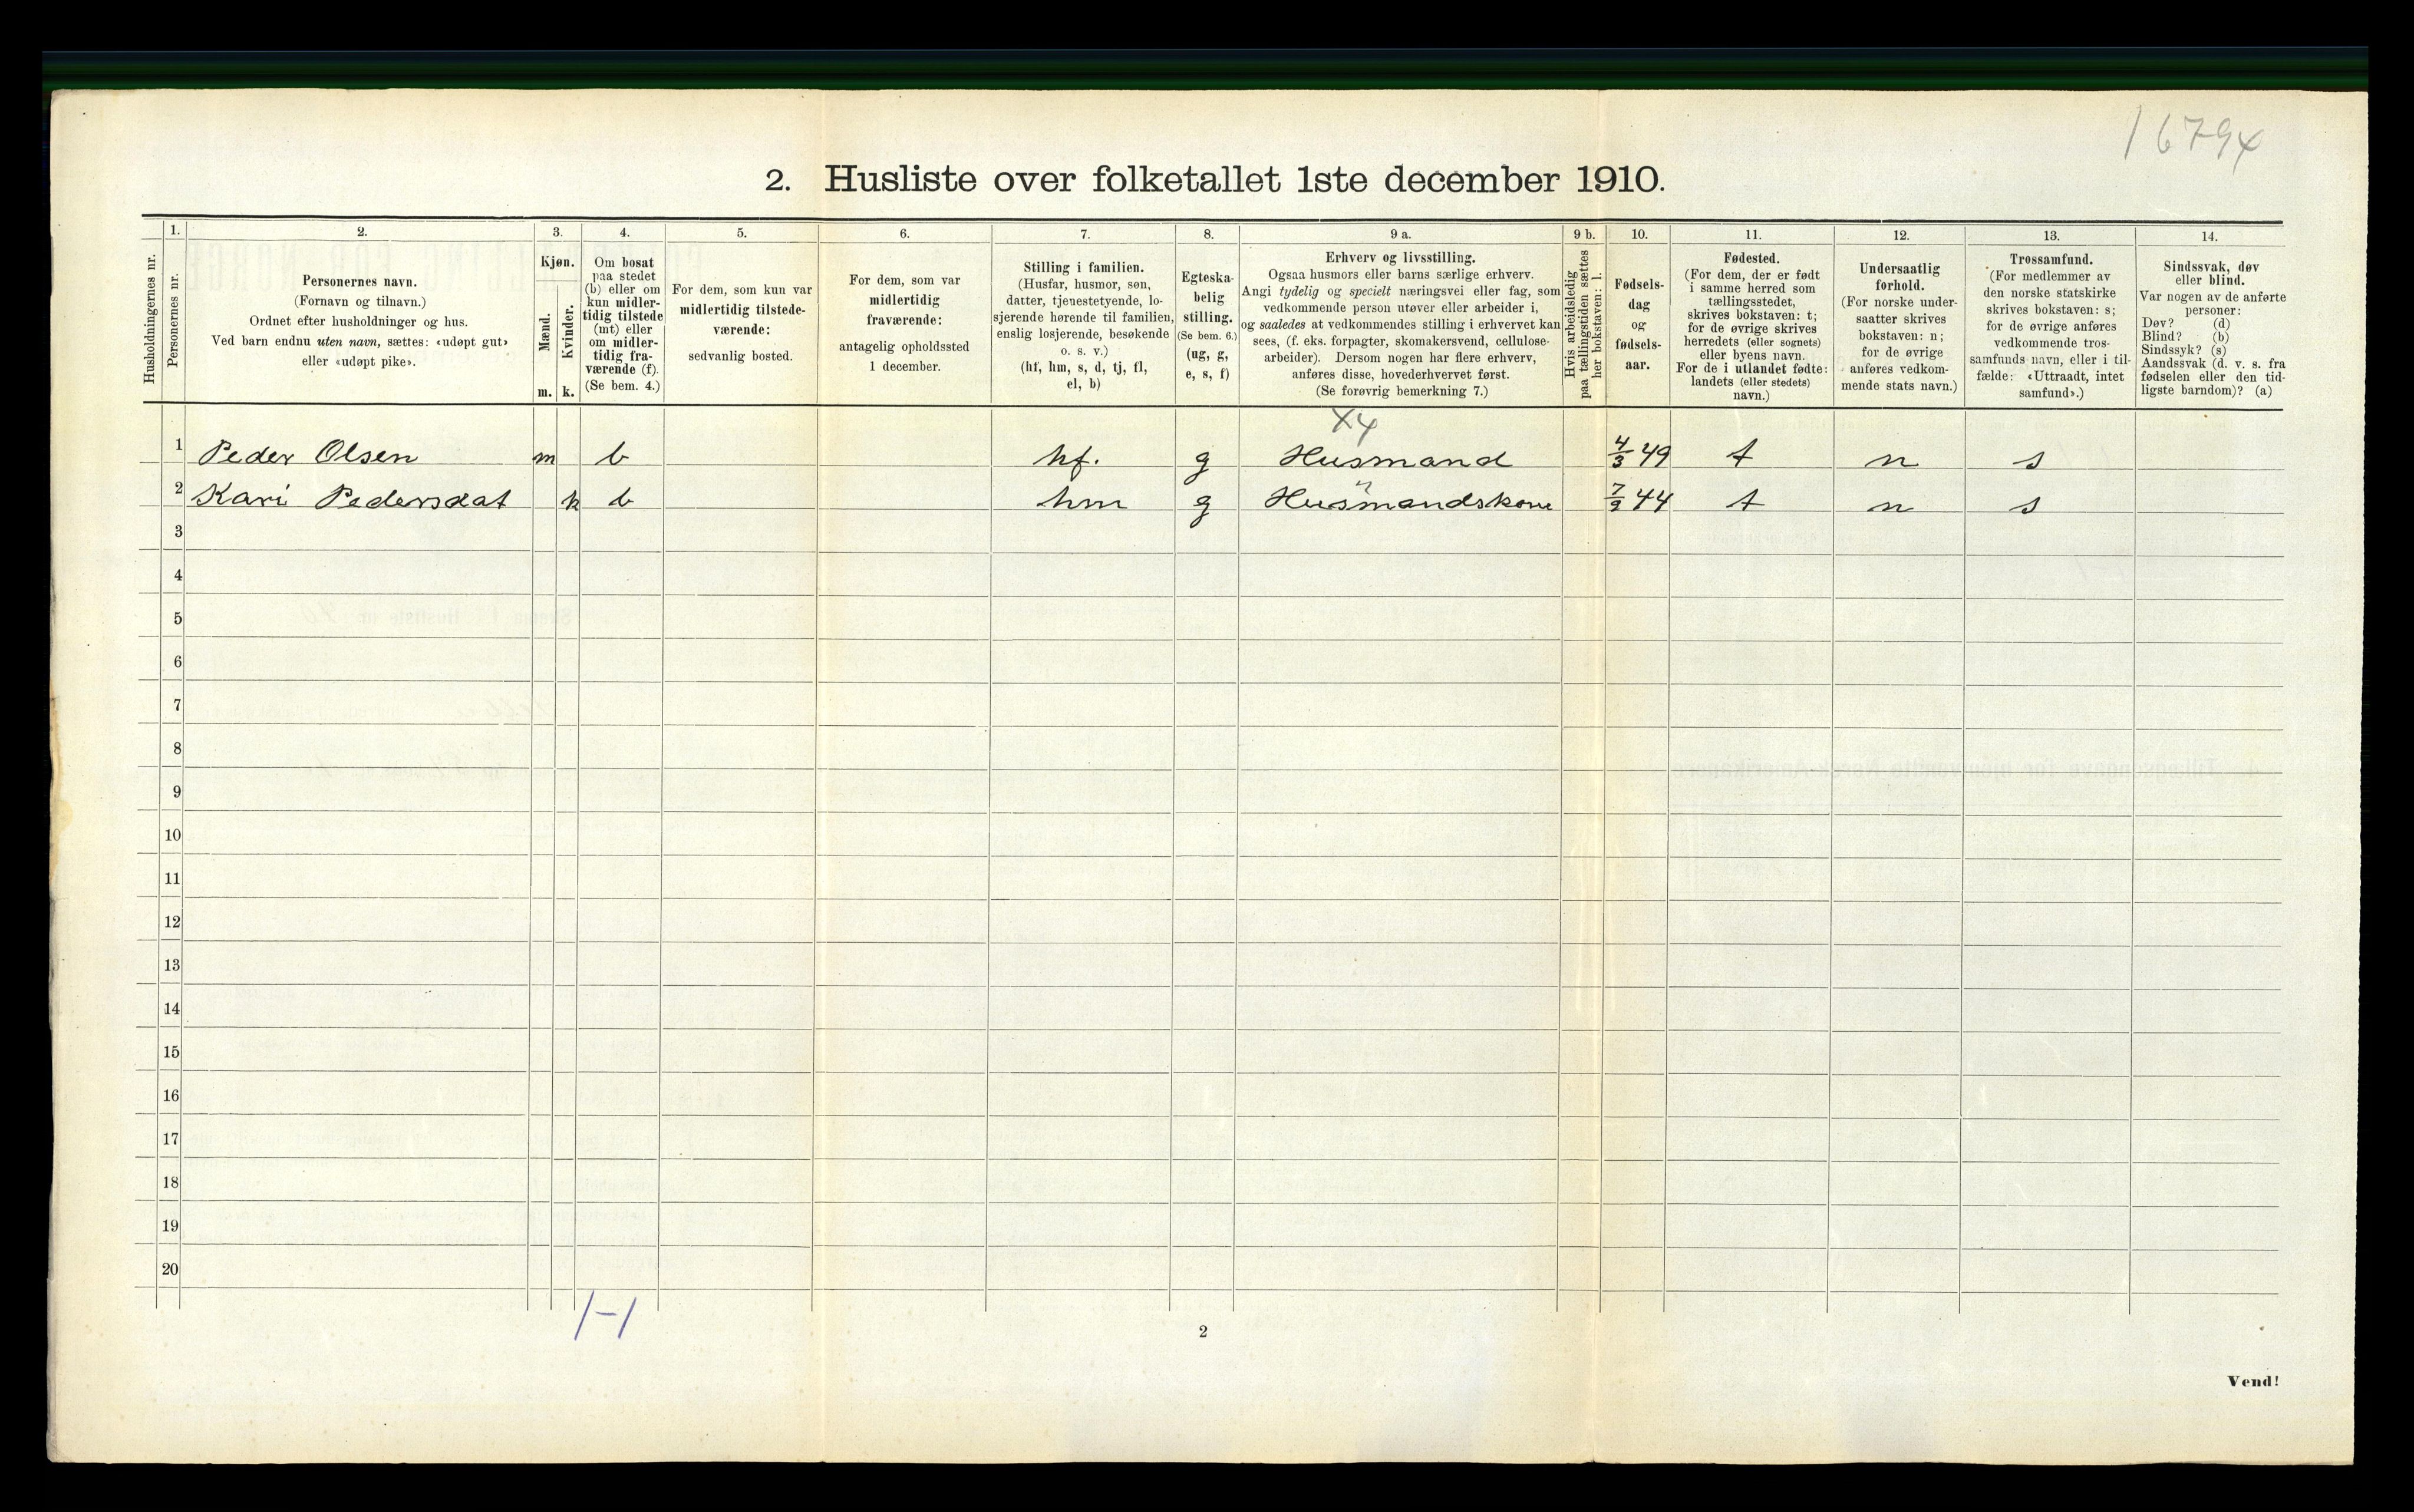 16794
2. Husliste over folketallet 1ste december 1910.
Husholdningernes nr.
1.
Personernes nr.
2.
Personernes navn.
(Fornavn og tilnavn.)
Ordnet efter husholdninger og hus.
Ved barn endnu uten navn, sættes: «udøpt gut»
eller «udøpt pike».
3.
Kjøn.
Mænd.
m.
Kvinder.
k.
4.
Om bosat
paa stedet
(b) eller om
kun midler-
tidig tilstede
(mt) eller
om midler-
tidig fra-
værende (f).
(Se bem. 4.)
5.
For dem, som kun var
midlertidig tilstede-
værende:
sedvanlig bosted.
6.
For dem, som var
midlertidig
fraværende:
antagelig opholdssted
1 december.
7.
Stilling i familien.
(Husfar, husmor, søn,
datter, tjenestetyende, lo-
sjerende hørende til familien,
enslig losjerende, besøkende
o. s. v.)
(hf, hm, s, d, tj, fl,
el, b)
8.
Egteska-
belig
stilling.
(Se bem. 6.)
(ug, g,
e, s, f)
9 a.
Erhverv og livsstilling.
Ogsaa husmors eller barns særlige erhverv.
Angi tydelig og specielt næringsvei eller fag, som
vedkommende person utøver eller arbeider i,
og saaledes at vedkommendes stilling i erhvervet kan
sees, (f. eks. forpagter, skomakersvend, cellulose-
arbeider). Dersom nogen har flere erhverv,
anføres disse, hovederhvervet først.
(Se forøvrig bemerkning 7.)
9 b.
Hvis arbeidsledig
paa tællingstiden sættes
her bokstaven: l.
10.
Fødsels-
dag
og
fødsels-
aar.
11.
Fødested.
(For dem, der er født
i samme herred som
tællingsstedet,
skrives bokstaven: t;
for de øvrige skrives
herredets (eller sognets)
eller byens navn.
For de i utlandet fødte:
landets (eller stedets)
navn.)
12.
Undersaatlig
forhold.
(For norske under-
saatter skrives
bokstaven: n;
for de øvrige
anføres vedkom-
mende stats navn.)
13.
Trossamfund.
(For medlemmer av
den norske statskirke
skrives bokstaven: s;
for de øvrige anføres
vedkommende tros-
samfunds navn, eller i til-
fælde: «Uttraadt, intet
samfund».)
14.
Sindssvak, døv
eller blind.
Var nogen av de anførte
personer:
Døv? (d)
Blind? (b)
Sindssyk? (s)
Aandssvak (d. v. s. fra
fødselen eller den tid-
ligste barndom)? (a)
X4
1 Peder Olsen m b hf. g Husmand 4/3 49 t n s
2 Kari Pedersdat k b hm g Husmandskone 7/9 44 t n s
3
4
5
6
7
8
9
10
11
12
13
14
15
16
17
18
19
20
1-1
2
Vend!